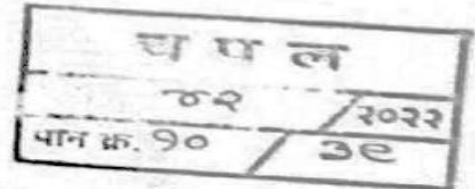 च प ल
४२ / २०२२
पान क्र. १० / ३९